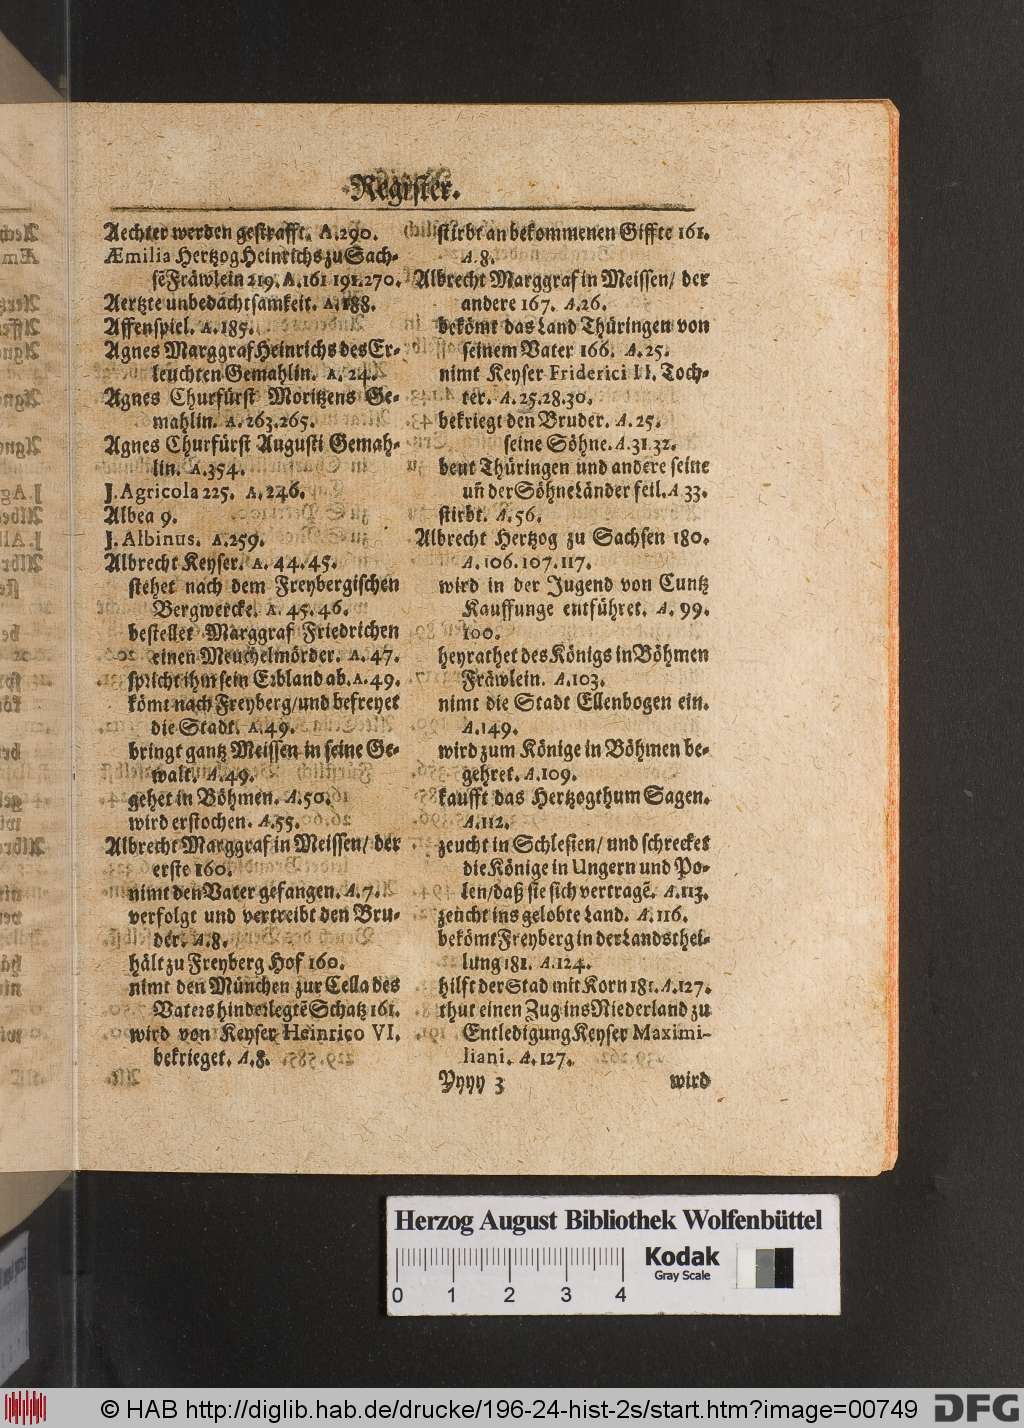 Register.
Aechter werden gestrafft. A.290.
Æmilia Hertzog Heinrichs zu Sach-
sẽ Fräwlein 219. A.161 191.270.
Aertzte unbedachtsamkeit. A.188.
Affenspiel. A.185.
Agnes Marggraf Heinrichs des Er-
leuchten Gemahlin. A. 24.
Agnes Churfürst Moritzens Ge-
mahlin. A.263.265.
Agnes Churfürst Augusti Gemah-
lin. A.354.
J. Agricola 225. A.246.
Albea 9.
J. Albinus. A.259.
Albrecht Keyser. A. 44.45.
stehet nach dem Freybergischen
Bergwercke. A. 45.46.
bestellet Marggraf Friedrichen
einen Meuchelmörder. A.47.
spricht ihm sein Erbland ab. A.49.
kömt nach Freyberg/und befreyet
die Stadt. A.49.
bringt gantz Meissen in seine Ge-
walt. A.49.
gehet in Böhmen. A.50.
wird erstochen. A.55.
Albrecht Marggraf in Meissen/ der
erste 160.
nimt den Vater gefangen. A.7.
verfolgt und vertreibt den Bru-
der. A.8.
hält zu Freyberg Hof 160.
nimt den München zur Cella des
Vaters hinderlegtẽ Schatz 161.
wird von Keyser Heinrico VI.
bekrieget. A.8.
stirbt an bekommenen Giffte 161.
A.8.
Albrecht Marggraf in Meissen/ der
andere 167. A.26.
bekömt das Land Thüringen von
seinem Vater 166. A.25.
nimt Keyser Friderici II. Toch-
ter. A.25.28.30.
bekriegt den Bruder. A.25.
seine Söhne. A.31.32.
beut Thüringen und andere seine
uñ der Söhne Länder feil. A 33.
stirbt. A.56.
Albrecht Hertzog zu Sachsen 180.
A.106.107.117.
wird in der Jugend von Cuntz
Kauffunge entführet. A. 99.
100.
heyrathet des Königs in Böhmen
Fräwlein. A.103.
nimt die Stadt Ellenbogen ein.
A.149.
wird zum Könige in Böhmen be-
gehret. A.109.
kaufft das Hertzogthum Sagen.
A.112.
zeucht in Schlesien/ und schrecket
die Könige in Ungern und Po-
len/daß sie sich vertragẽ. A.113.
zeucht ins gelobte Land. A.116.
bekömt Freyberg in der Landsthei-
lung 181. A.124.
hilft der Stad mit Korn 181. A.127.
thut einen Zug ins Niederland zu
Entledigung Keyser Maximi-
liani. A.127.
Yyyy 3 wird
Herzog August Bibliothek Wolfenbüttel
Kodak
Gray Scale
0 1 2 3 4
© HAB http://diglib.hab.de/drucke/196-24-hist-2s/start.htm?image=00749
DFG